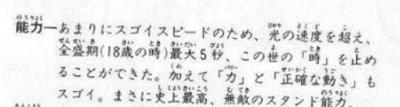 能力―あまりにスゴイスピードのため、光の速度を超え、
全盛期(18歳の時)最大5秒、この世の「時」を止め
ることができた。加えて「力」と「正確な動き」も
スゴイ。まさに史上最高、無敵のスタンド能力。